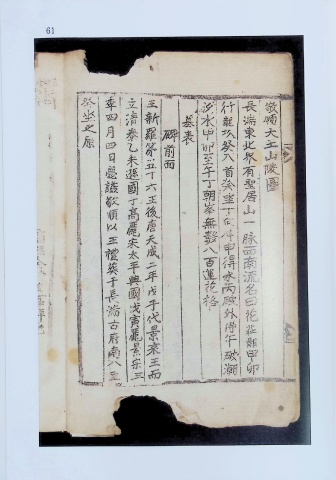 61
敬順大王山陵圖
長湍東北界有聖居山一脉西南流名曰花莊龍甲卯
行龍坎癸入首癸坐丁向
汾水甲卯至午丁朝峯無數八百蓮花格
墓表
碑前面
王新羅第五十六王後唐天成二年戊子代景哀王而
立清泰乙未遜國于高麗宋太平興國戊寅麗景宗三
年四月四日薨諡敬順以王禮葬于長湍古府南八里
癸坐之原